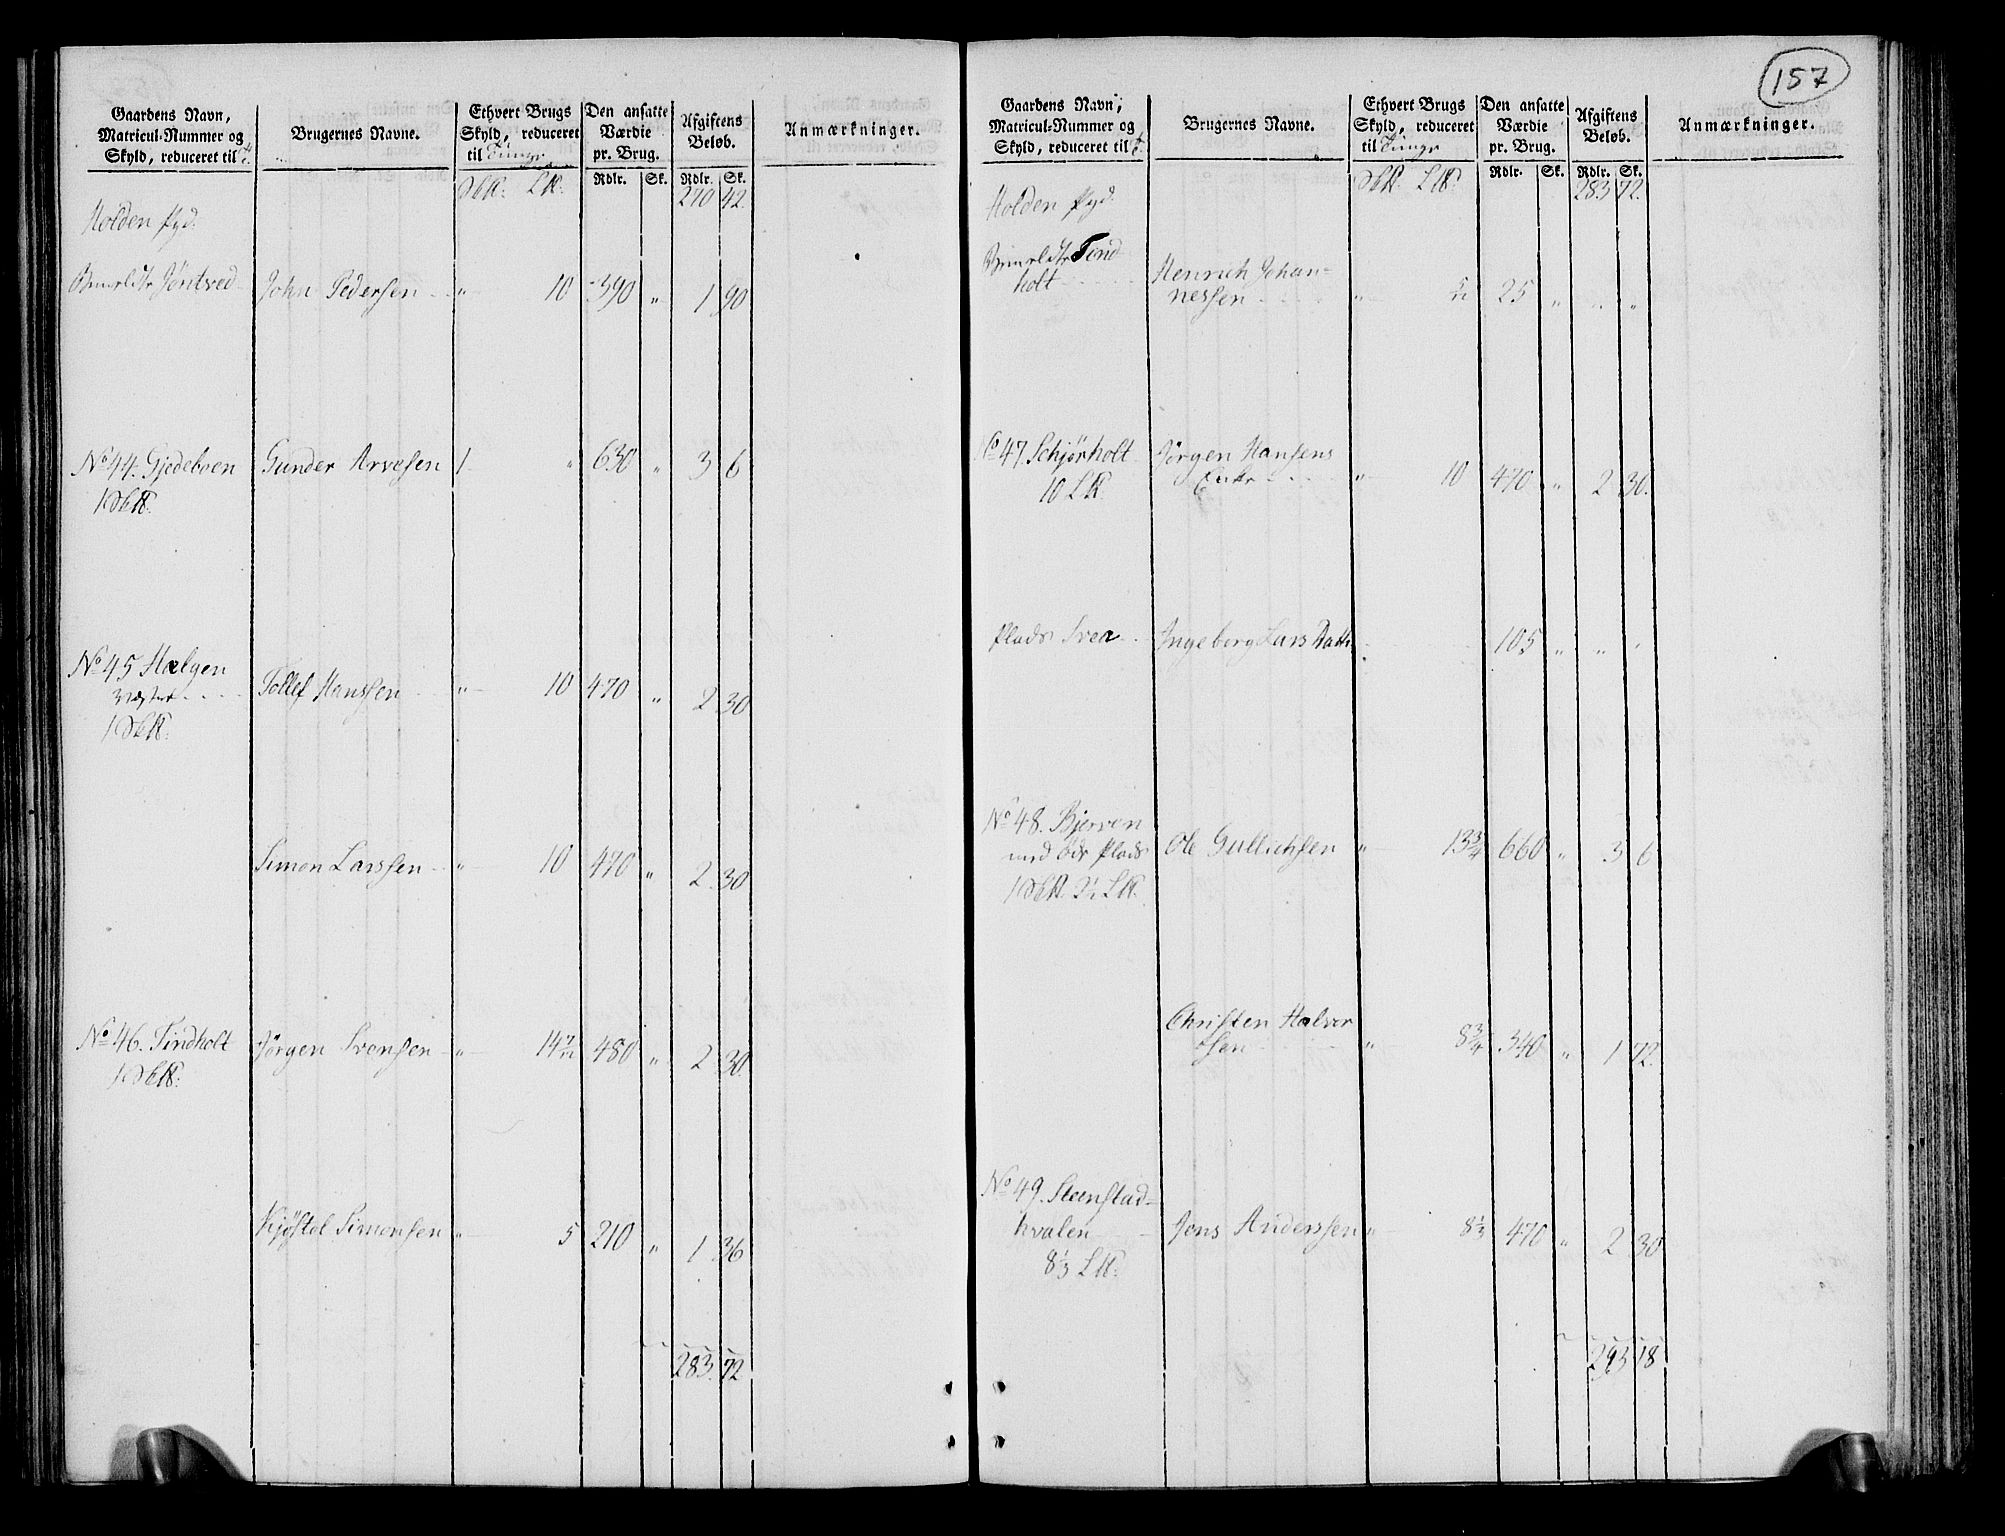 157
Gaardens Navn,
Matricul-Nummer og
Skyld, reduceret til
Brugernes Navne.
Ethvert Brugs
Skyld, reduceret
til Tunge
Den ansatte
Værdie
pr. Brug.
Afgiftens
Beløb.
Anmærkninger.
Rdlr. Sk. Rdlr. Sk.
270 42.
Holden
Jøntved John Pedersen " 10 390 " 1 90
No 44. Gjedeboen Gunder Arvesen 1 " 630 " 3 6
No 45 Hælgen
Tollef Hanssen " 10 470 " 2 30
Simon Larssen " 10 470 " 2 30
No 46. Tindholt Jørgen Svensen " 14 7/12 480 " 2 30.
Kjøstol Simonsen " 5 210 " 1 36
283. 72
Gaardens Navn,
Matricul-Nummer og
Skyld, reduceret til
Brugernes Navne.
Ethvert Brugs
Skyld, reduceret
til Tunge
Den ansatte
Værdie
pr. Brug.
Afgiftens
Beløb.
Anmærkninger.
Rdlr. Sk. Rdlr. Sk.
283 72.
Holden
Tind
holt
Henrich Johan=
nessen " 5/12 25 " " "
No 47. Schjørholt Jørgen Hansens
10 L℔
Enke " 10 470 " 2 30.
Plads Svea Ingeborg Lars Datter 105 " " "
No 48. Bjerven
med Plads
Ole Gullichsen " 13 3/4 660 " 3 6
Christen Halvor
sen " 8 3/4 340 " 1 72.
No 49. Steenstad=
hvalen Jens Anderssen " 8 1/3 470 " 2 30
8 1/3 L℔.
293 18